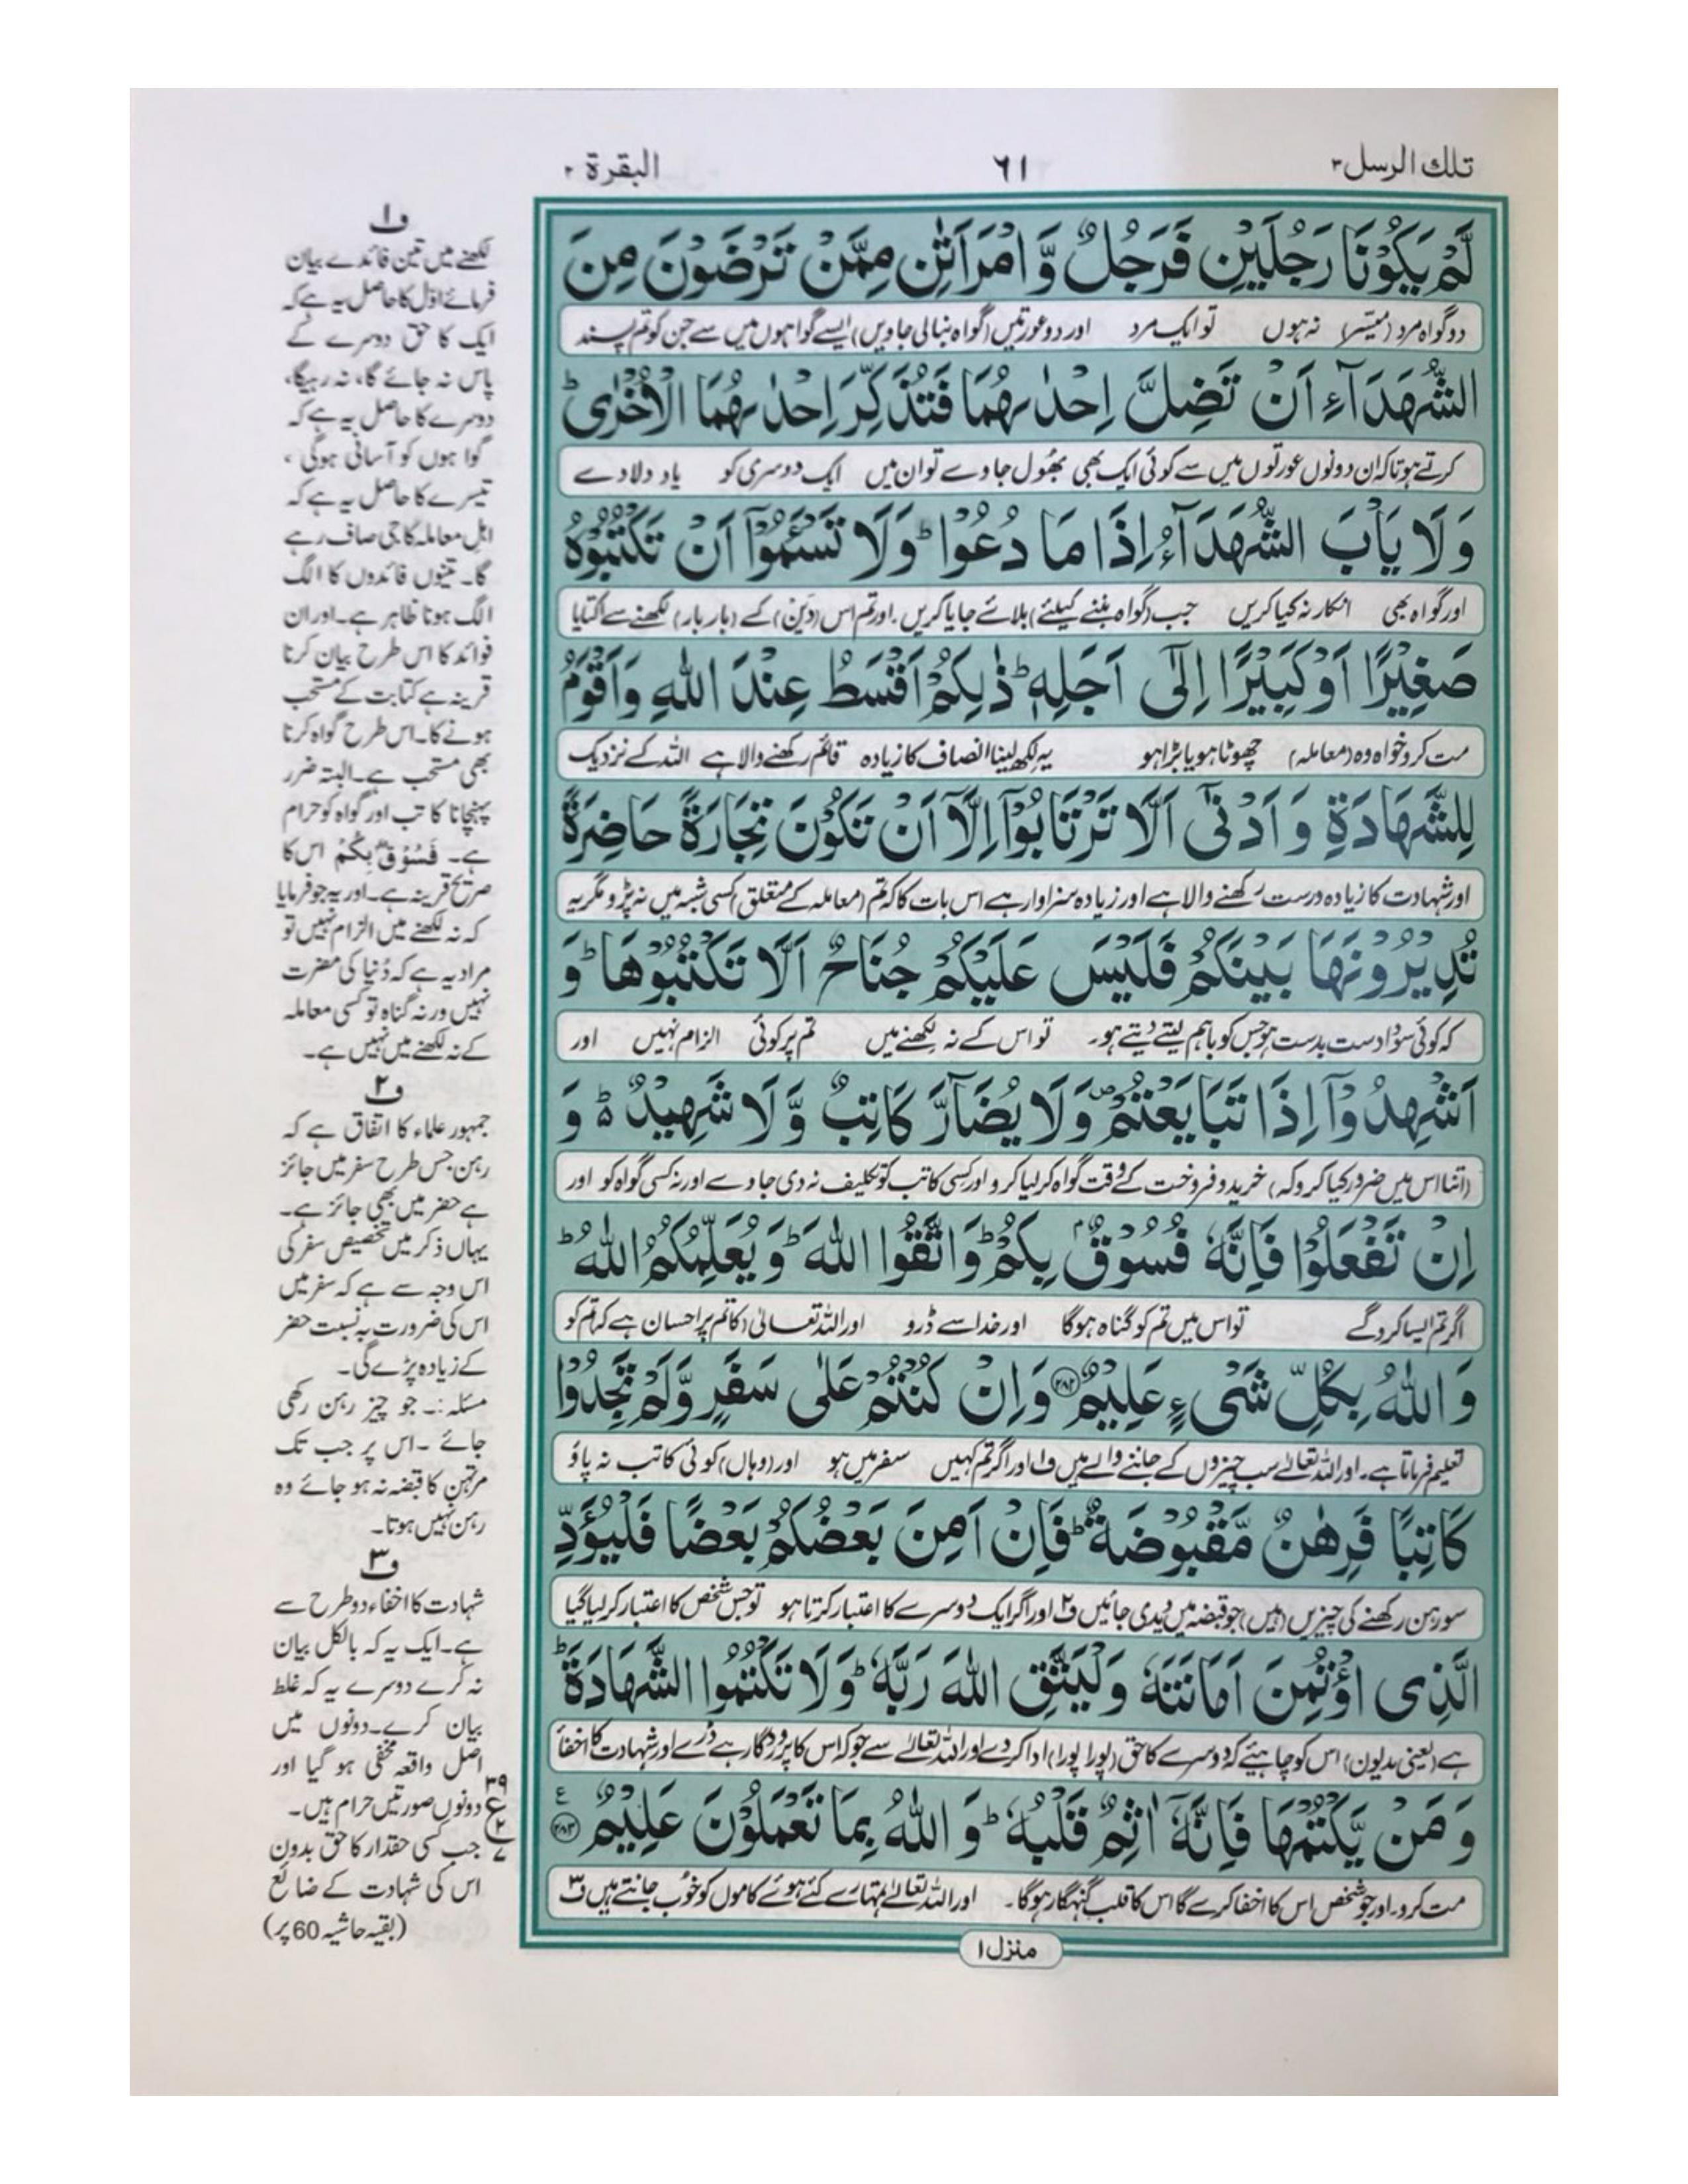 تلك الرسل ۳
٦١
البقرة ۲
لَّمْ يَكُوْنَا رَجُلَيْنِ فَرَجُلٌ وَّ امْرَاَتٰنِ مِمَّنْ تَرْضَوْنَ مِنَ
دو گواہ مرد (میسّر) نہ ہوں تو ایک مرد اور دو عورتیں (گواہ بنالی جاویں) ایسے گواہوں میں سے جن کو تم پسند
الشُّهَدَآءِ اَنْ تَضِلَّ اِحْدٰىهُمَا فَتُذَكِّرَ اِحْدٰىهُمَا الْاُخْرٰى ؕ
کرتے ہو تاکہ ان دونوں عورتوں میں سے کوئی ایک بھی بھُول جاوے تو ان میں ایک دوسری کو یاد دلا دے
وَلَا يَاْبَ الشُّهَدَآءُ اِذَا مَا دُعُوْا ؕ وَلَا تَسْـَٔمُوْۤا اَنْ تَكْتُبُوْهُ
اور گواہ بھی انکار نہ کیا کریں جب (گواہ بننے کیلئے) بلائے جایا کریں۔ اور تم اس (دَین) کے (بار بار) لکھنے سے اکتایا
صَغِيْرًا اَوْ كَبِيْرًا اِلٰۤى اَجَلِهٖ ؕ ذٰلِكُمْ اَقْسَطُ عِنْدَ اللّٰهِ وَاَقْوَمُ
مت کرو خواہ وہ (معاملہ) چھوٹا ہو یا بڑا ہو یہ لکھ لینا انصاف کا زیادہ قائم رکھنے والا ہے اللہ کے نزدیک
لِلشَّهَادَةِ وَ اَدْنٰۤى اَلَّا تَرْتَابُوْۤا اِلَّاۤ اَنْ تَكُوْنَ تِجَارَةً حَاضِرَةً
اور شہادت کا زیادہ درست رکھنے والا ہے اور زیادہ سزاوار ہے اس بات کا کہ تم (معاملہ کے متعلق) کسی شبہ میں نہ پڑو مگر یہ
تُدِيْرُوْنَهَا بَيْنَكُمْ فَلَيْسَ عَلَيْكُمْ جُنَاحٌ اَلَّا تَكْتُبُوْهَا ؕ وَ
کہ کوئی سوْدا دست بدست ہو جس کو باہم لیتے دیتے ہو۔ تو اس کے نہ لکھنے میں تم پر کوئی الزام نہیں اور
اَشْهِدُوْۤا اِذَا تَبَايَعْتُمْ ۪ وَلَا يُضَآرَّ كَاتِبٌ وَّ لَا شَهِيْدٌ ؕ۬ وَ
(اتنا اس میں ضرور کیا کرو کہ) خرید و فروخت کے وقت گواہ کر لیا کرو اور کسی کاتب کو تکلیف نہ دی جاوے اور نہ کسی گواہ کو اور
اِنْ تَفْعَلُوْا فَاِنَّهٗ فُسُوْقٌۢ بِكُمْ ؕ وَاتَّقُوا اللّٰهَ ؕ وَيُعَلِّمُكُمُ اللّٰهُ ؕ
اگر تم ایسا کرو گے تو اس میں تم کو گناہ ہوگا اور خدا سے ڈرو اور اللہ تعالیٰ (کا تم پر احسان ہے کہ) تم کو
وَ اللّٰهُ بِكُلِّ شَىْءٍ عَلِيْمٌ ﴿۲۸۲﴾ وَاِنْ كُنْتُمْ عَلٰى سَفَرٍ وَّلَمْ تَجِدُوْا
تعلیم فرماتا ہے۔ اور اللہ تعالےٰ سب چیزوں کے جاننے والے ہیں ف۱ اور اگر تم کہیں سفر میں ہو اور (وہاں) کوئی کاتب نہ پاؤ
كَاتِبًا فَرِهٰنٌ مَّقْبُوْضَةٌ ؕ فَاِنْ اَمِنَ بَعْضُكُمْ بَعْضًا فَلْيُؤَدِّ
سو رہن رکھنے کی چیزیں (ہیں) جو قبضہ میں دیدی جائیں ف۲ اور اگر ایک دوسرے کا اعتبار کرتا ہو تو جس شخص کا اعتبار کر لیا گیا
الَّذِى اؤْتُمِنَ اَمَانَتَهٗ وَلْيَتَّقِ اللّٰهَ رَبَّهٗ ؕ وَلَا تَكْتُمُوا الشَّهَادَةَ ؕ
ہے (یعنی مدیون) اس کو چاہیئے کہ دوسرے کا حق (پورا پورا) ادا کر دے اور اللہ تعالےٰ سے جو کہ اس کا پروردگار ہے ڈرے اور شہادت کا اخفا
وَ مَنْ يَّكْتُمْهَا فَاِنَّهٗۤ اٰثِمٌ قَلْبُهٗ ؕ وَ اللّٰهُ بِمَا تَعْمَلُوْنَ عَلِيْمٌ ﴿۲۸۳﴾ ع
مت کرو۔ اور جو شخص اس کا اخفا کرے گا اس کا قلب گنہگار ہوگا۔ اور اللہ تعالےٰ تمہارے کئے ہوئے کاموں کو خوُب جانتے ہیں ف۳
منزل ۱
ف۱
لکھنے میں تین فائدے بیان
فرمائے اوّل کا حاصل یہ ہے کہ
ایک کا حق دوسرے کے
پاس نہ جائے گا، نہ رہیگا،
دوسرے کا حاصل یہ ہے کہ
گواہوں کو آسانی ہوگی،
تیسرے کا حاصل یہ ہے کہ
اہلِ معاملہ کا جی صاف رہے
گا۔ تینوں فائدوں کا الگ
الگ ہونا ظاہر ہے۔ اور ان
فوائد کا اس طرح بیان کرنا
قرینہ ہے کتابت کے مستحب
ہونے کا۔ اس طرح گواہ کرنا
بھی مستحب ہے۔ البتہ ضرر
پہنچانا کاتب اور گواہ کو حرام
ہے۔ فُسُوْقٌۢ بِكُمْ اس کا
صریح قرینہ ہے۔ اور یہ جو فرمایا
کہ نہ لکھنے میں الزام نہیں تو
مراد یہ ہے کہ دُنیا کی مضرت
نہیں ورنہ گناہ تو کسی معاملہ
کے نہ لکھنے میں نہیں ہے۔
ف۲
جمہور علماء کا اتفاق ہے کہ
رہن جس طرح سفر میں جائز
ہے حضر میں بھی جائز ہے۔
یہاں ذکر میں تخصیص سفر کی
اس وجہ سے ہے کہ سفر میں
اس کی ضرورت بہ نسبت حضر
کے زیادہ پڑے گی۔
مسئلہ:۔ جو چیز رہن رکھی
جائے ۔ اس پر جب تک
مرتہن کا قبضہ نہ ہو جائے وہ
رہن نہیں ہوتا۔
ف۳
شہادت کا اخفاء دو طرح سے
ہے۔ ایک یہ کہ بالکل بیان
نہ کرے دوسرے یہ کہ غلط
بیان کرے۔ دونوں میں
اصل واقعہ مخفی ہو گیا اور
دونوں صورتیں حرام ہیں۔
جب کسی حقدار کا حق بدون
اس کی شہادت کے ضائع
(بقیہ حاشیہ 60 پر)
۳۹
ع
۲
۷